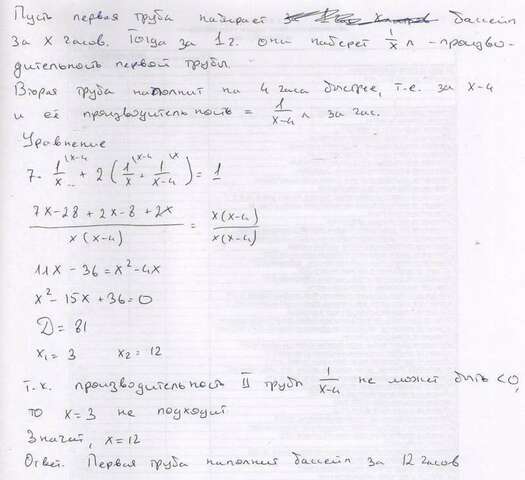 Пусть первая труба набирает бассейн
за x часов. Тогда за 1 г. они наберет 1/x л - произво-
дительность первой трубы.
Вторая труба наполнит на 4 часа быстрее, т.е. за x-4
и её производительность = 1/(x-4) л за час.
Уравнение
7 · 1/x (x-4 + 2 ( 1/x (x-4 + 1/(x-4) (x ) = 1
(7x-28 + 2x-8 + 2x)/(x(x-4)) = x(x-4)/(x(x-4))
11x - 36 = x²-4x
x² - 15x + 36 = 0
D = 81
x₁ = 3 x₂ = 12
т.к. производительность II трубы 1/(x-4) не может быть <0,
то x=3 не подходит
Значит, x=12
Ответ. Первая труба наполнит бассейн за 12 часов